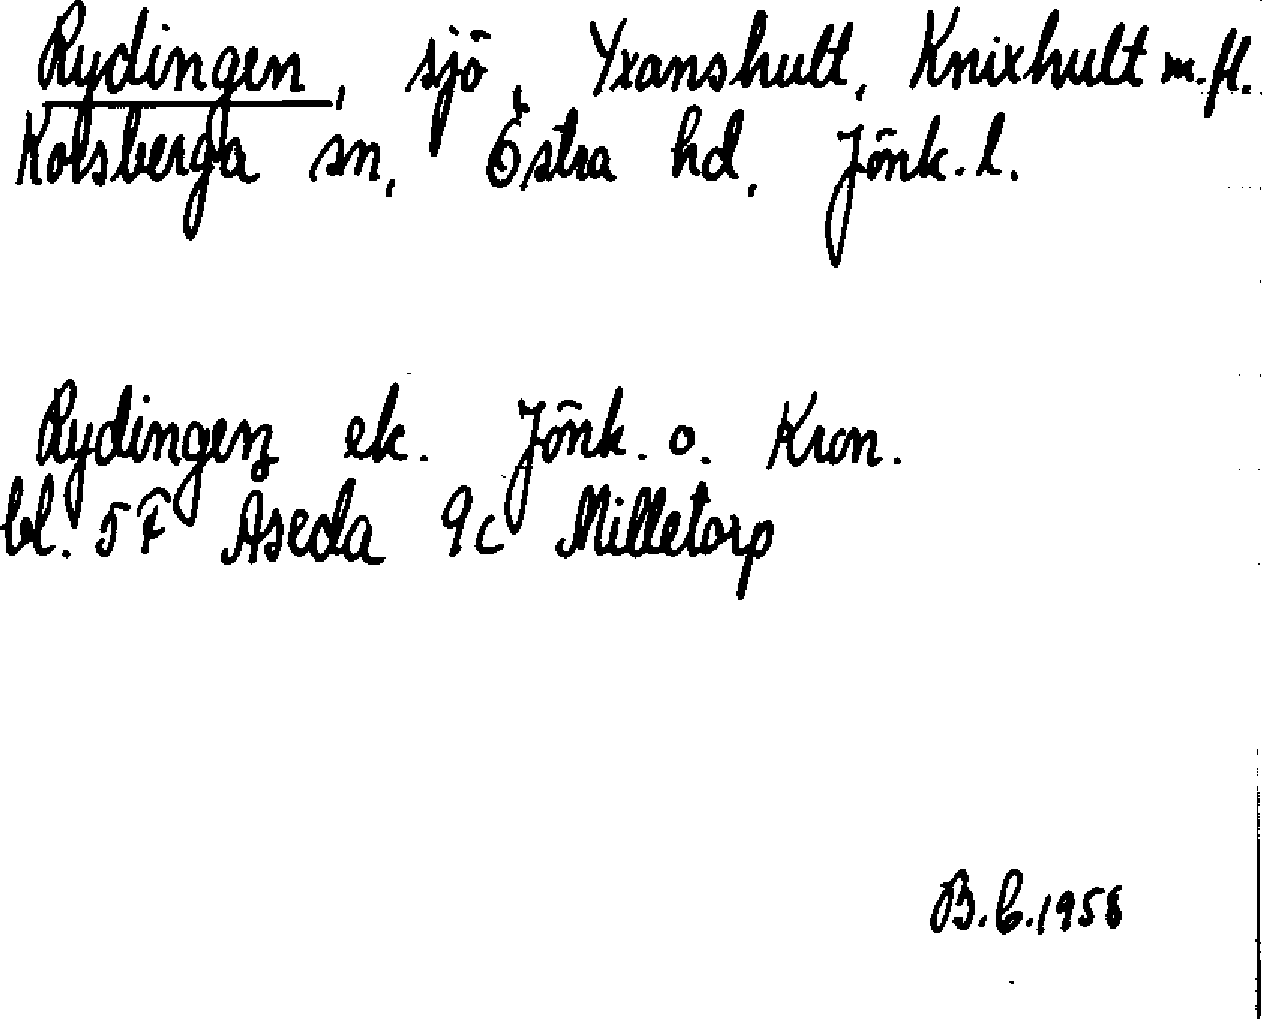 Rydingen, sjö, Yxanshult, Knixhult m.fl.
Korsberga sn, Östra hd, Jönk. l.
Rydingen ek. Jönk. o. Kron.
bl. 5F Åseda 9c Milletorp
B.C.1958